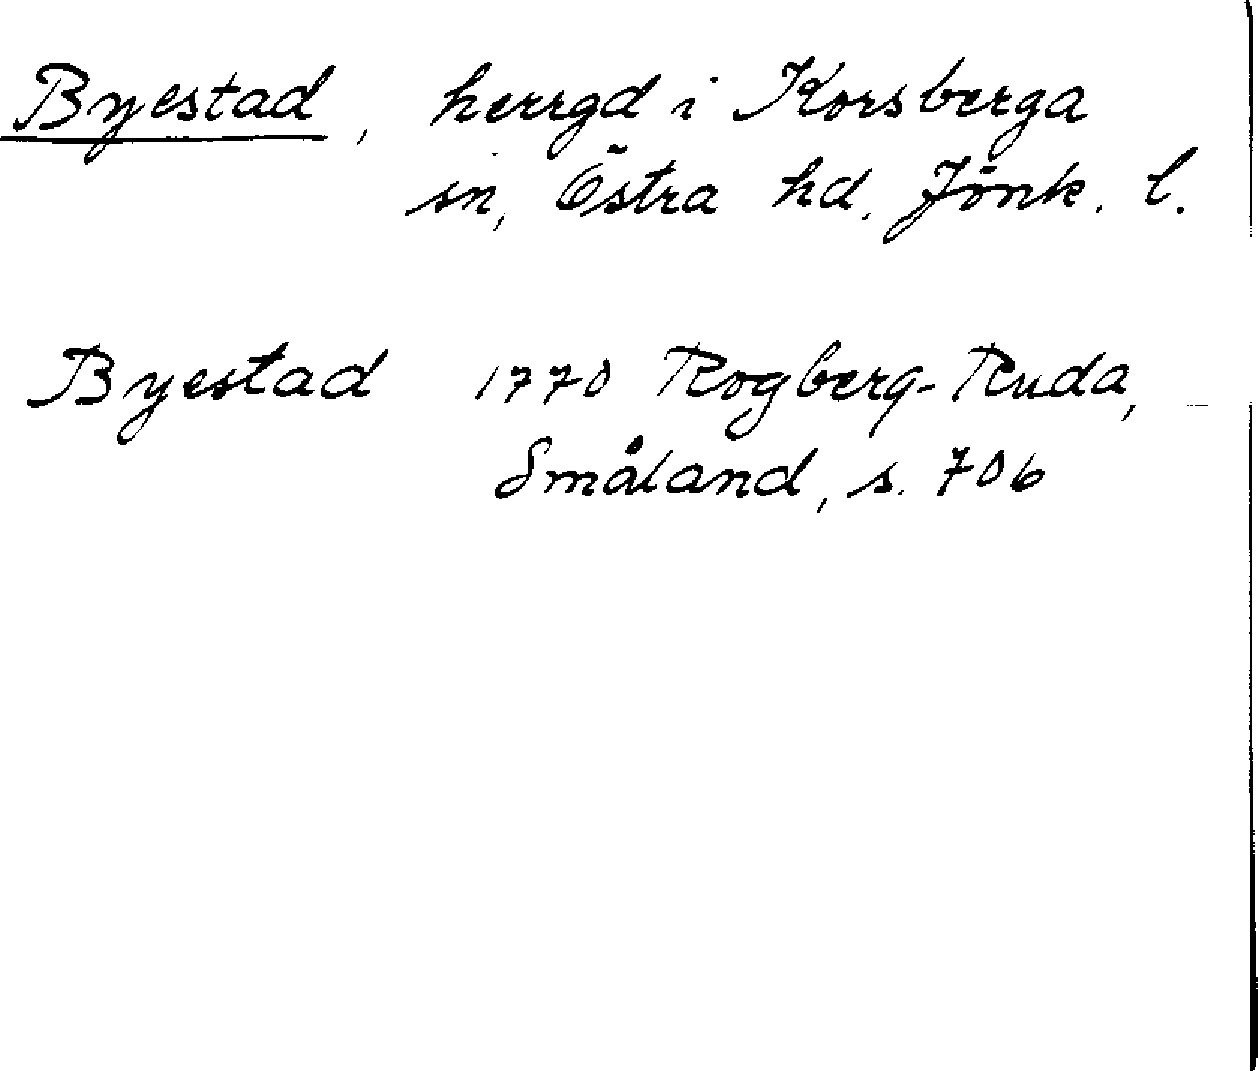 Byestad, herrgd i Korsberga
sn, Östra hd. Jönk. l.
Byestad 1770 Rogberg-Ruda,
Småland, s. 706